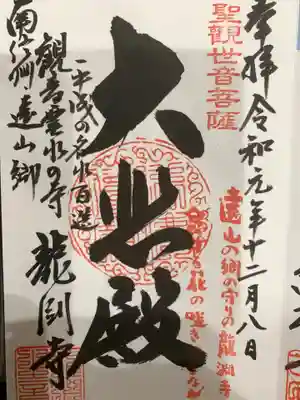 奉拝 令和元年十二月八日
聖觀世音菩薩
遠山の郷の守りの龍淵寺
大悲殿
平成の名水百選
観音霊水の寺 龍淵寺
南信州遠山郷